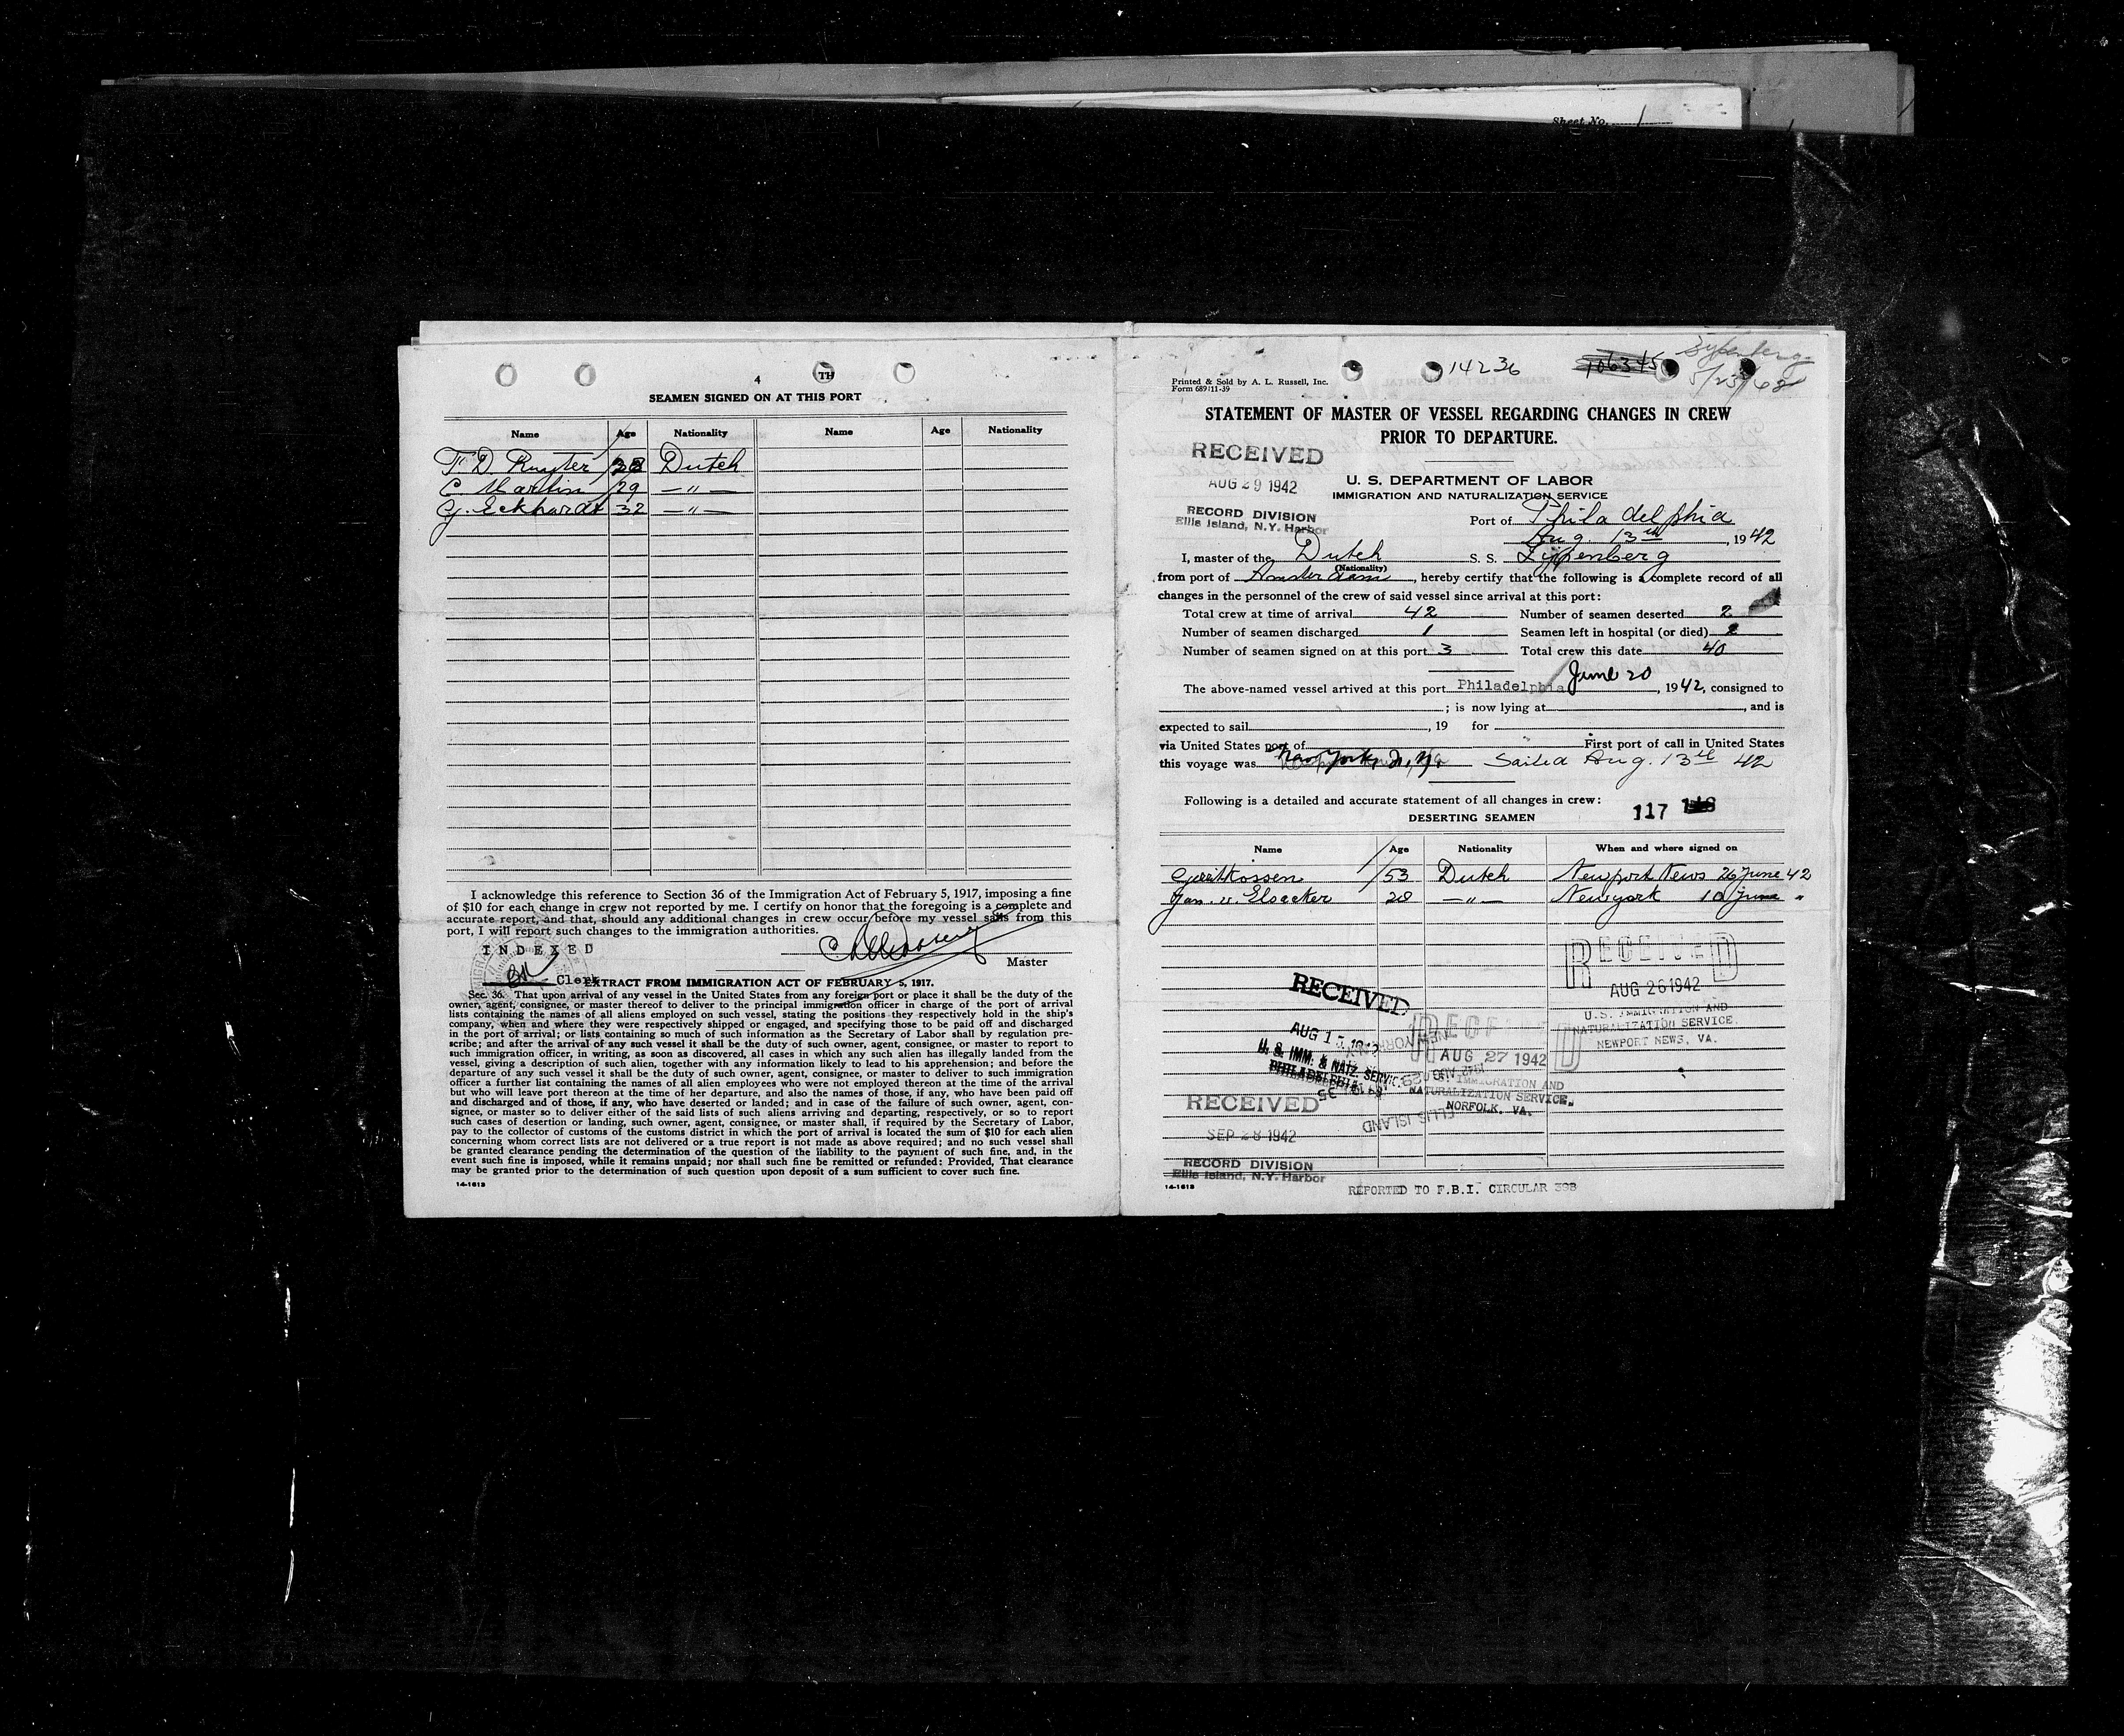 Sheet No. 1
4
TH
SEAMEN SIGNED ON AT THIS PORT
Name Age Nationality Name Age Nationality
F. D. Ruyter Dutch
C. Martin 29 — " —
G. Eckhardt 32 — " —
I acknowledge this reference to Section 36 of the Immigration Act of February 5, 1917, imposing a fine
of $10 for each change in crew not reported by me. I certify on honor that the foregoing is a complete and
accurate report, and that, should any additional changes in crew occur before my vessel sails from this
port, I will report such changes to the immigration authorities.
INDEXED
Master
Clerk
EXTRACT FROM IMMIGRATION ACT OF FEBRUARY 5, 1917.
Sec. 36. That upon arrival of any vessel in the United States from any foreign port or place it shall be the duty of the
owner, agent, consignee, or master thereof to deliver to the principal immigration officer in charge of the port of arrival
lists containing the names of all aliens employed on such vessel, stating the positions they respectively hold in the ship's
company, when and where they were respectively shipped or engaged, and specifying those to be paid off and discharged
in the port of arrival; or lists containing so much of such information as the Secretary of Labor shall by regulation pre-
scribe; and after the arrival of any such vessel it shall be the duty of such owner, agent, consignee, or master to report to
such immigration officer, in writing, as soon as discovered, all cases in which any such alien has illegally landed from the
vessel, giving a description of such alien, together with any information likely to lead to his apprehension; and before the
departure of any such vessel it shall be the duty of such owner, agent, consignee, or master to deliver to such immigration
officer a further list containing the names of all alien employees who were not employed thereon at the time of the arrival
but who will leave port thereon at the time of her departure, and also the names of those, if any, who have been paid off
and discharged and of those, if any, who have deserted or landed; and in case of the failure of such owner, agent, con-
signee, or master so to deliver either of the said lists of such aliens arriving and departing, respectively, or so to report
such cases of desertion or landing, such owner, agent, consignee, or master shall, if required by the Secretary of Labor,
pay to the collector of customs of the customs district in which the port of arrival is located the sum of $10 for each alien
concerning whom correct lists are not delivered or a true report is not made as above required; and no such vessel shall
be granted clearance pending the determination of the question of the liability to the payment of such fine, and, in the
event such fine is imposed, while it remains unpaid; nor shall such fine be remitted or refunded: Provided, That clearance
may be granted prior to the determination of such question upon deposit of a sum sufficient to cover such fine.
14-1613
14236
106345
Printed & Sold by A. L. Russell, Inc.
Form 689 11-39
STATEMENT OF MASTER OF VESSEL REGARDING CHANGES IN CREW
PRIOR TO DEPARTURE.
RECEIVED
AUG 29 1942
RECORD DIVISION
Ellis Island, N.Y. Harbor
U. S. DEPARTMENT OF LABOR
IMMIGRATION AND NATURALIZATION SERVICE
Port of Philadelphia
Aug. 13th, 1942
I, master of the Dutch S. S. Sypenberg
(Nationality)
from port of Amsterdam, hereby certify that the following is a complete record of all
changes in the personnel of the crew of said vessel since arrival at this port:
Total crew at time of arrival 42 Number of seamen deserted 2
Number of seamen discharged 1 Seamen left in hospital (or died) 2
Number of seamen signed on at this port 3 Total crew this date 40
The above-named vessel arrived at this port Philadelphia June 20, 1942, consigned to
; is now lying at , and is
expected to sail , 19 for
via United States port of First port of call in United States
this voyage was New York, N.Y. Sailed Aug. 13th 42
Following is a detailed and accurate statement of all changes in crew:
117
DESERTING SEAMEN
Name Age Nationality When and where signed on
Gerrit Kossen 53 Dutch Newport News 26 June 42
Jan. v. Elsacker 28 — " — New york 10 June "
RECEIVED
AUG 26 1942
U.S. IMMIGRATION AND
NATURALIZATION SERVICE.
NEWPORT NEWS, VA.
RECEIVED
AUG 15 1942
U. S. IMM. & NATZ. SERVICE
PHILADELPHIA
RECEIVED
AUG 27 1942
U.S. IMMIGRATION AND
NATURALIZATION SERVICE.
NORFOLK, VA.
ELLIS ISLAND
RECEIVED
SEP 28 1942
RECORD DIVISION
Ellis Island, N.Y. Harbor
14-1613
REPORTED TO F.B.I. CIRCULAR 38B